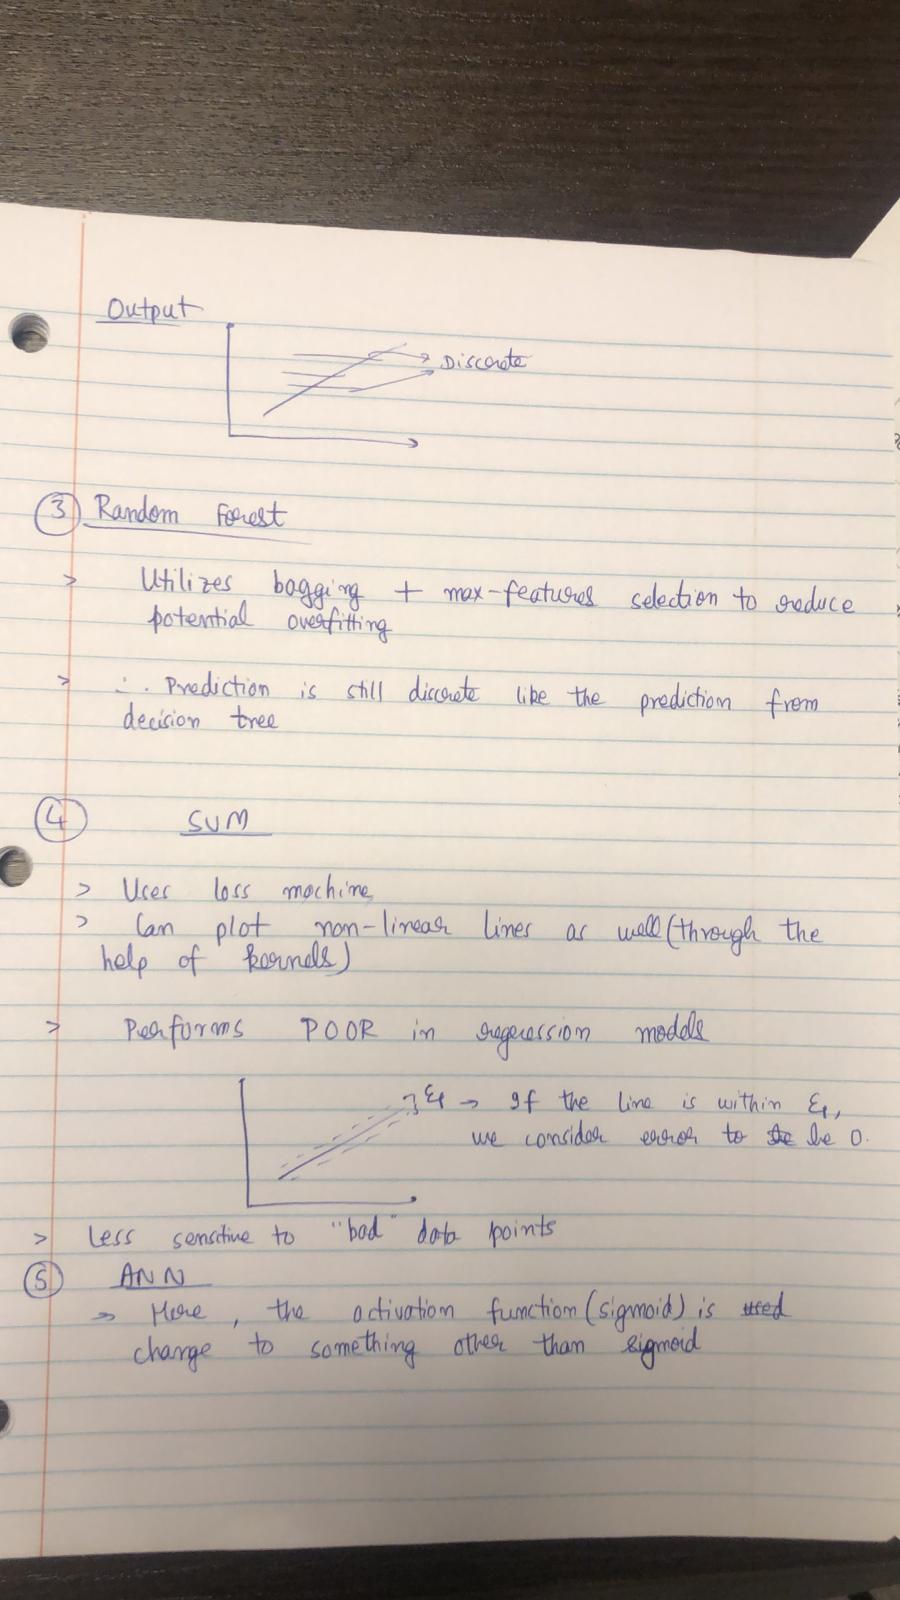 Output
Discrete
3 Random Forest
> Utilizes bagging + max-features selection to reduce
potential overfitting
> ∴ Prediction is still discrete like the prediction from
decision tree
4 SVM
> Uses loss machine
> Can plot non-linear lines as well (through the
help of kernels)
> Performs POOR in regression models
ε₁ → If the line is within ε₁,
we consider error to be 0.
> Less sensitive to "bad" data points
5 ANN
→ Here, the activation function (sigmoid) is used
change to something other than sigmoid